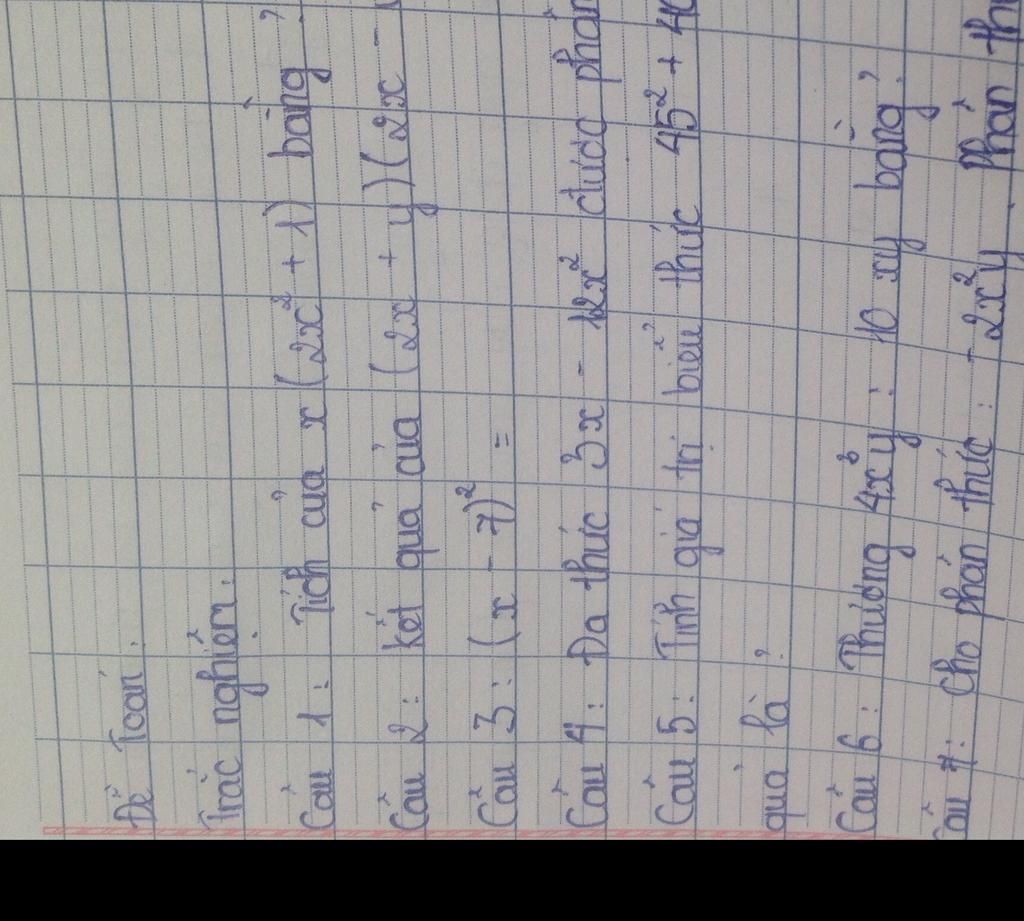 Đề Toán.
Trắc nghiệm.
Câu 1: Tích của x (2x² + 1) bằng?
Câu 2: Kết quả của (2x + y)(2x -
Câu 3: (x - 7)² =
Câu 4: Đa thức 3x - 12x² được phân
Câu 5: Tính giá trị biểu thức 45² + 40
quả là?
Câu 6: Thương 4x³y : 10 xy bằng?
Câu 7: Cho phân thức: - 2x²y. Phân th